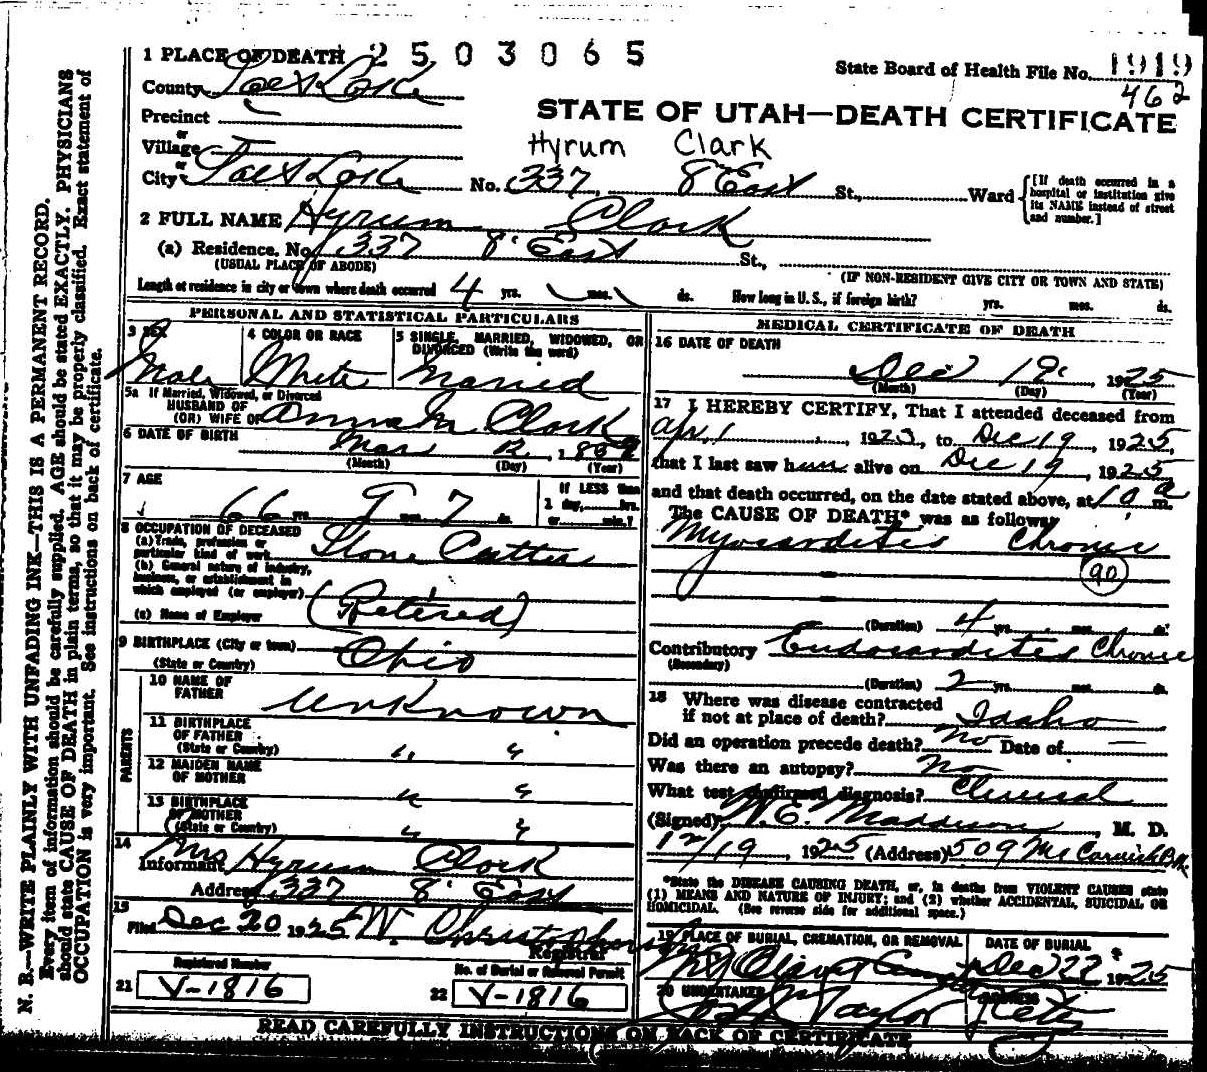 1 PLACE OF DEATH 2503065
State Board of Health File No. 1919
462
County Salt Lake
STATE OF UTAH—DEATH CERTIFICATE
Precinct
or
Village
Hyrum Clark
or
City Salt Lake No. 337, 8 East St., Ward [If death occurred in a hospital or institution give its NAME instead of street and number.]
2 FULL NAME Hyrum Clark
(a) Residence. No. 337 8' East St.,
(USUAL PLACE OF ABODE) (IF NON-RESIDENT GIVE CITY OR TOWN AND STATE)
Length of residence in city or town where death occurred 4 yrs. mos. ds. How long in U. S., if foreign birth? yrs. mos. ds.
PERSONAL AND STATISTICAL PARTICULARS
3 SEX
Male
4 COLOR OR RACE
White
5 SINGLE, MARRIED, WIDOWED, OR DIVORCED (Write the word)
Married
5a If Married, Widowed, or Divorced
HUSBAND OF
(OR) WIFE OF Anna M Clark
6 DATE OF BIRTH
Mar 12, 1859
(Month) (Day) (Year)
7 AGE
66 yrs. 9 mos. 7 ds.
If LESS than
1 day, hrs.
or min.?
8 OCCUPATION OF DECEASED
(a) Trade, profession or
particular kind of work Stone Cutter
(b) General nature of industry,
business, or establishment in
which employed (or employer) (Retired)
(c) Name of Employer
9 BIRTHPLACE (City or town)
(State or Country) Ohio
PARENTS
10 NAME OF
FATHER Unknown
11 BIRTHPLACE
OF FATHER
(State or Country) " "
12 MAIDEN NAME
OF MOTHER " "
13 BIRTHPLACE
OF MOTHER
(State or Country) " "
14
Informant Mrs Hyrum Clark
Address 337 8' East
15
Filed Dec 20 1925 W. Christopherson
Registrar
Registered Number
21 V-1816
No. of Burial or Removal Permit
22 V-1816
MEDICAL CERTIFICATE OF DEATH
16 DATE OF DEATH
Dec 19 1925
(Month) (Day) (Year)
17 I HEREBY CERTIFY, That I attended deceased from
Apr. 1, 1923, to Dec 19, 1925,
that I last saw him alive on Dec 19, 1925
and that death occurred, on the date stated above, at 10 a m.
The CAUSE OF DEATH* was as follows:
Myocarditis Chronic
90
(Duration) 4 yrs. mos. ds.
Contributory Endocarditis Chronic
(Secondary)
(Duration) 2 yrs. mos. ds.
18 Where was disease contracted
if not at place of death? Idaho
Did an operation precede death? No Date of —
Was there an autopsy? No
What test confirmed diagnosis? Clinical
(Signed) W. E. Maddison, M. D.
12/19, 1925 (Address) 509 McCornick B.
*State the DISEASE CAUSING DEATH, or, in deaths from VIOLENT CAUSES state
(1) MEANS AND NATURE OF INJURY; and (2) whether ACCIDENTAL, SUICIDAL OR
HOMICIDAL. (See reverse side for additional space.)
19 PLACE OF BURIAL, CREMATION, OR REMOVAL
Mt Olivet
DATE OF BURIAL
Dec 22 1925
20 UNDERTAKER
Taylor
ADDRESS
City
READ CAREFULLY INSTRUCTIONS ON BACK OF CERTIFICATE
N. B.—WRITE PLAINLY WITH UNFADING INK—THIS IS A PERMANENT RECORD.
Every item of information should be carefully supplied. AGE should be stated EXACTLY. PHYSICIANS
should state CAUSE OF DEATH in plain terms, so that it may be properly classified. Exact statement of
OCCUPATION is very important. See instructions on back of certificate.